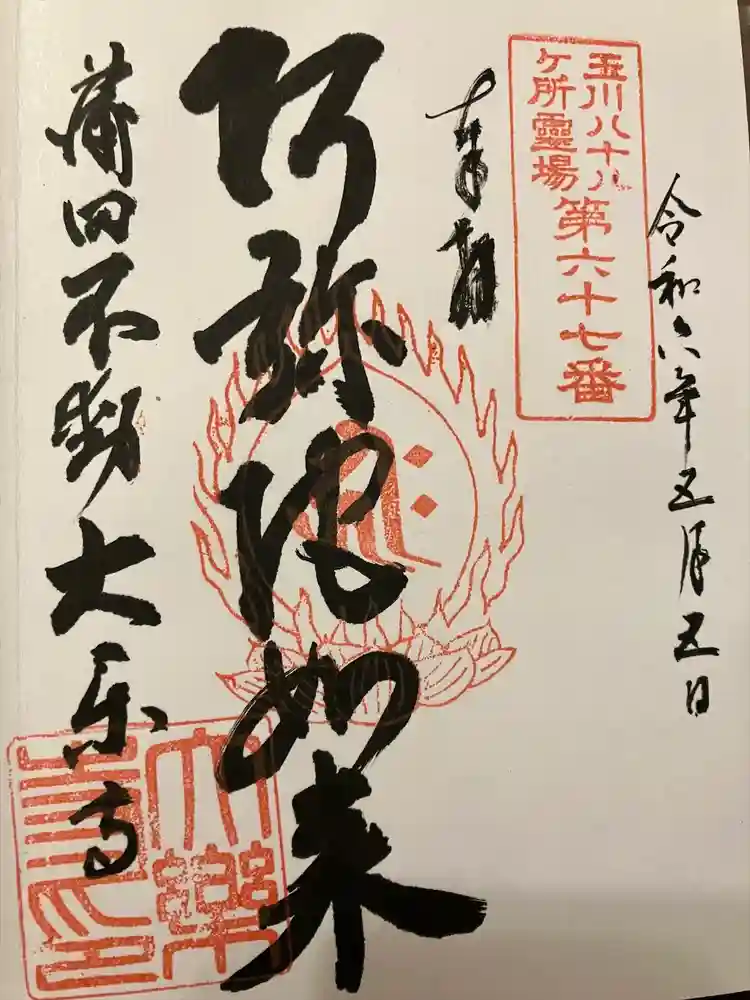 令和六年五月五日
玉川八十八
ヶ所靈場
第六十七番
奉拝
阿弥陀如来
蒲田不動大楽寺